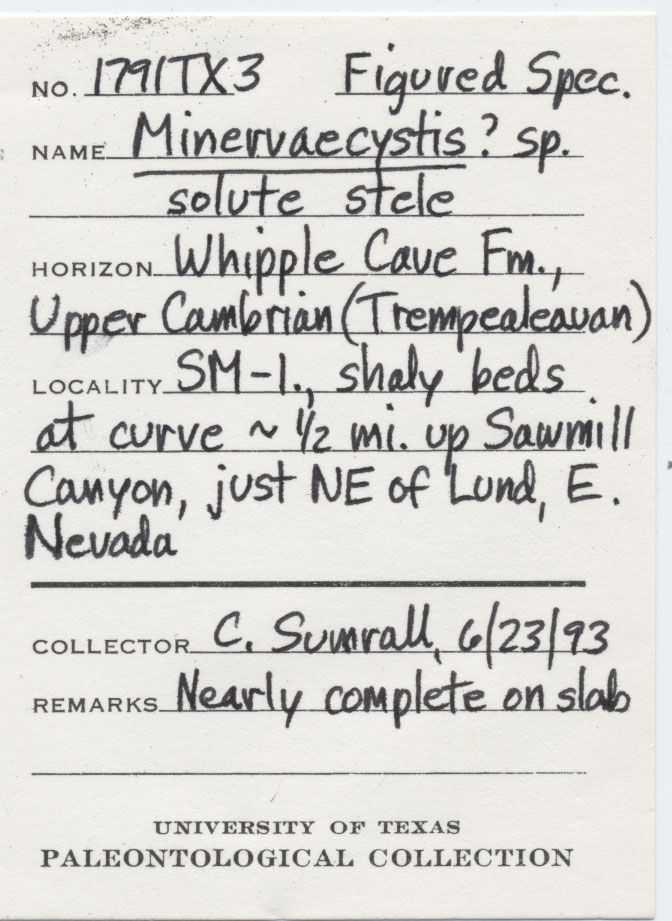 NO. 1791TX3 Figured Spec.
NAME Minervaecystis? sp.
solute stele
HORIZON Whipple Cave Fm.,
Upper Cambrian (Trempealeauan)
LOCALITY SM-1., shaly beds
at curve ~ 1/2 mi. up Sawmill
Canyon, just NE of Lund, E.
Nevada
COLLECTOR C. Sumrall, 6/23/93
REMARKS Nearly complete on slab
UNIVERSITY OF TEXAS
PALEONTOLOGICAL COLLECTION